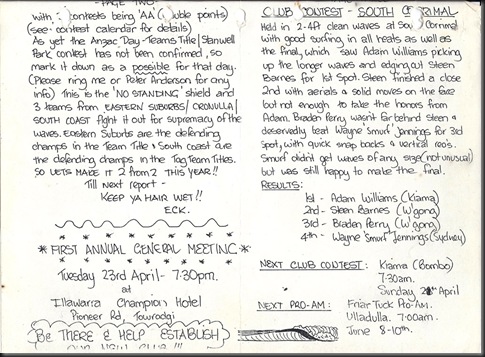 PAGE TWO
with contests being 'AA' (double points)
(see contest calendar for details)
As yet the Anzac Day - Teams Title | Stanwell
Park contest has not been confirmed, so
mark it down as a possible for that day.
(Please ring me or Peter Anderson for any
info) This is the 'NO STANDING' shield and
3 teams from EASTERN SUBURBS/CRONULLA/
SOUTH COAST fight it out for supremacy of the
waves. Eastern Suburbs are the defending
champs in the Team Title & South coast are
the defending champs in the Tag Team Titles.
SO LETS MADE IT 2 FROM 2 THIS YEAR!!
Till next report -
KEEP YA HAIR WET!!
E.C.K.
* FIRST ANNUAL GENERAL MEETING *
Tuesday 23rd April - 7:30pm.
at
Illawarra Champion Hotel
Pioneer Rd, Towradgi
BE THERE & HELP ESTABLISH
OUR NEW CLUB!!!
CLUB CONTEST - SOUTH CORRIMAL
Held in 2-4ft clean waves at South Corrimal
with good surfing in all heats as well as
the final, which saw Adam Williams picking
up the longer waves and edging out Steen
Barnes for 1st Spot. Steen finished a close
2nd with aerials & solid moves on the face
but not enough to take the honors from
Adam. Braden Perry wasn't far behind Steen &
deservedly beat Wayne 'Smurf' Jennings for 3rd
Spot, with quick snap backs & vertical reo's.
Smurf didn't get waves of any size (not unusual)
but was still happy to make the final.
RESULTS:
1st - Adam Williams (Kiama)
2nd - Steen Barnes (W'gong)
3rd - Braden Perry (W'gong)
4th - Wayne 'Smurf' Jennings (Sydney)
NEXT CLUB CONTEST: Kiama (Bombo)
7:30am.
Sunday April
NEXT PRO-AM: Friar Tuck Pro-Am.
Ulladulla. 7:00am.
June 8-10th.